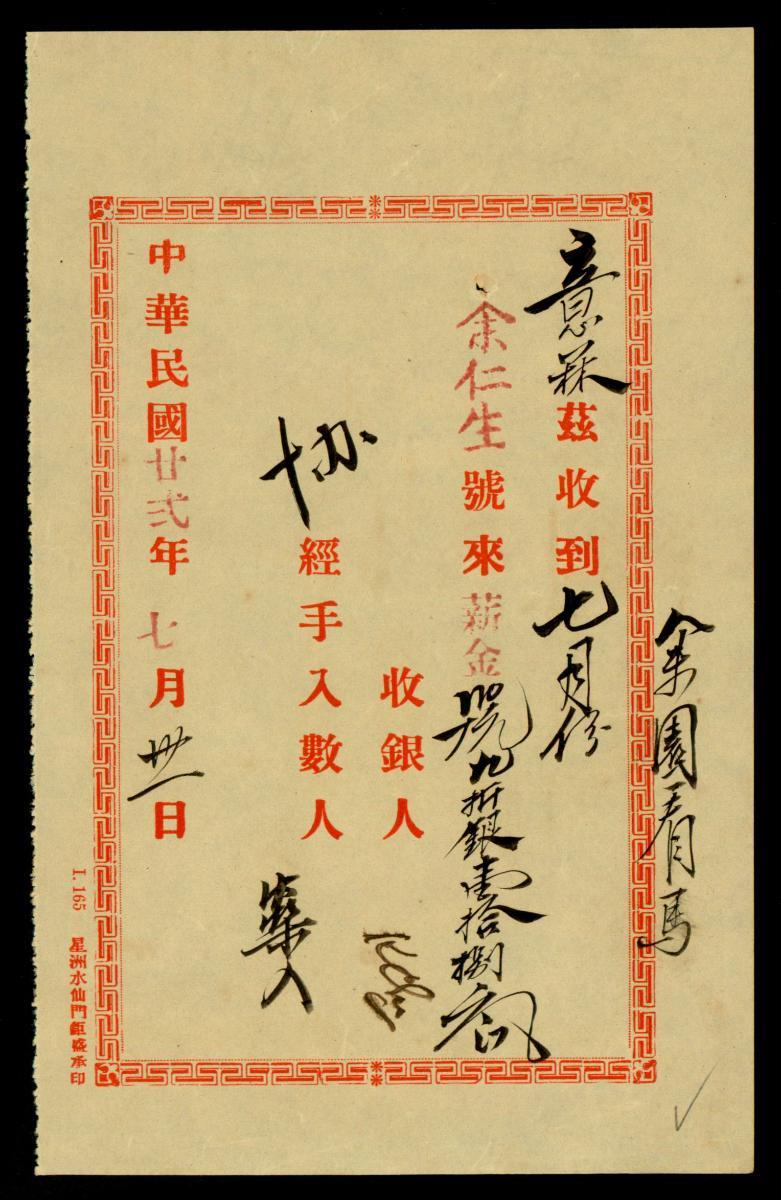 余園看馬
意 茲收到七月份
余仁生號來薪金 九折銀壹拾捌
收銀人
協 經手入數人
入
中華民國廿弍年七月卅一日
I. 165 星洲水仙門鉅盛承印